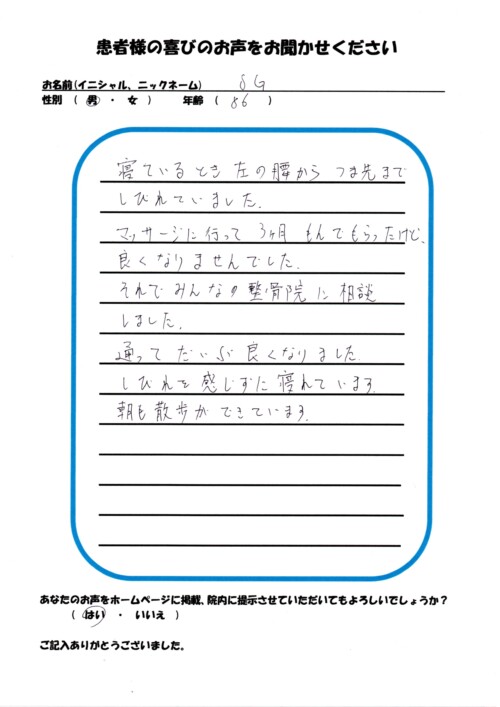 患者様の喜びのお声をお聞かせください
お名前(イニシャル、ニックネーム) SG
性別 ( 男 ・ 女 ) 年齢 ( 86 )
寝ているとき 左の腰から つま先まで
しびれていました.
マッサージに行って 3ヶ月 もんでもらったけど、
良くなりませんでした.
それで みんなの 整骨院に 相談
しました.
通って だいぶ 良くなりました.
しびれを 感じずに 寝れています.
朝も 散歩が できています.
あなたのお声をホームページに掲載、院内に提示させていただいてもよろしいでしょうか？
( はい ・ いいえ )
ご記入ありがとうございました。